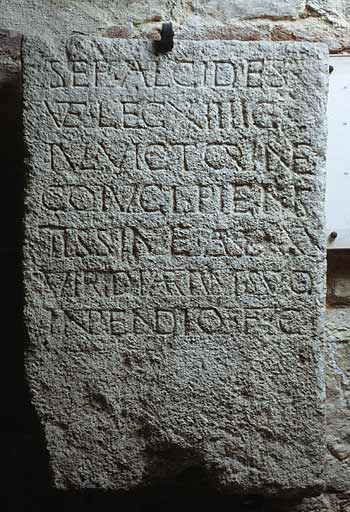 SEP·ALCIDES
VE·LEG·XIIII·G
IVL·VICTORINE
CONIVGI·PIEN
TISSIME
VIRDIARIVM SVO
INPENDIO·F·C